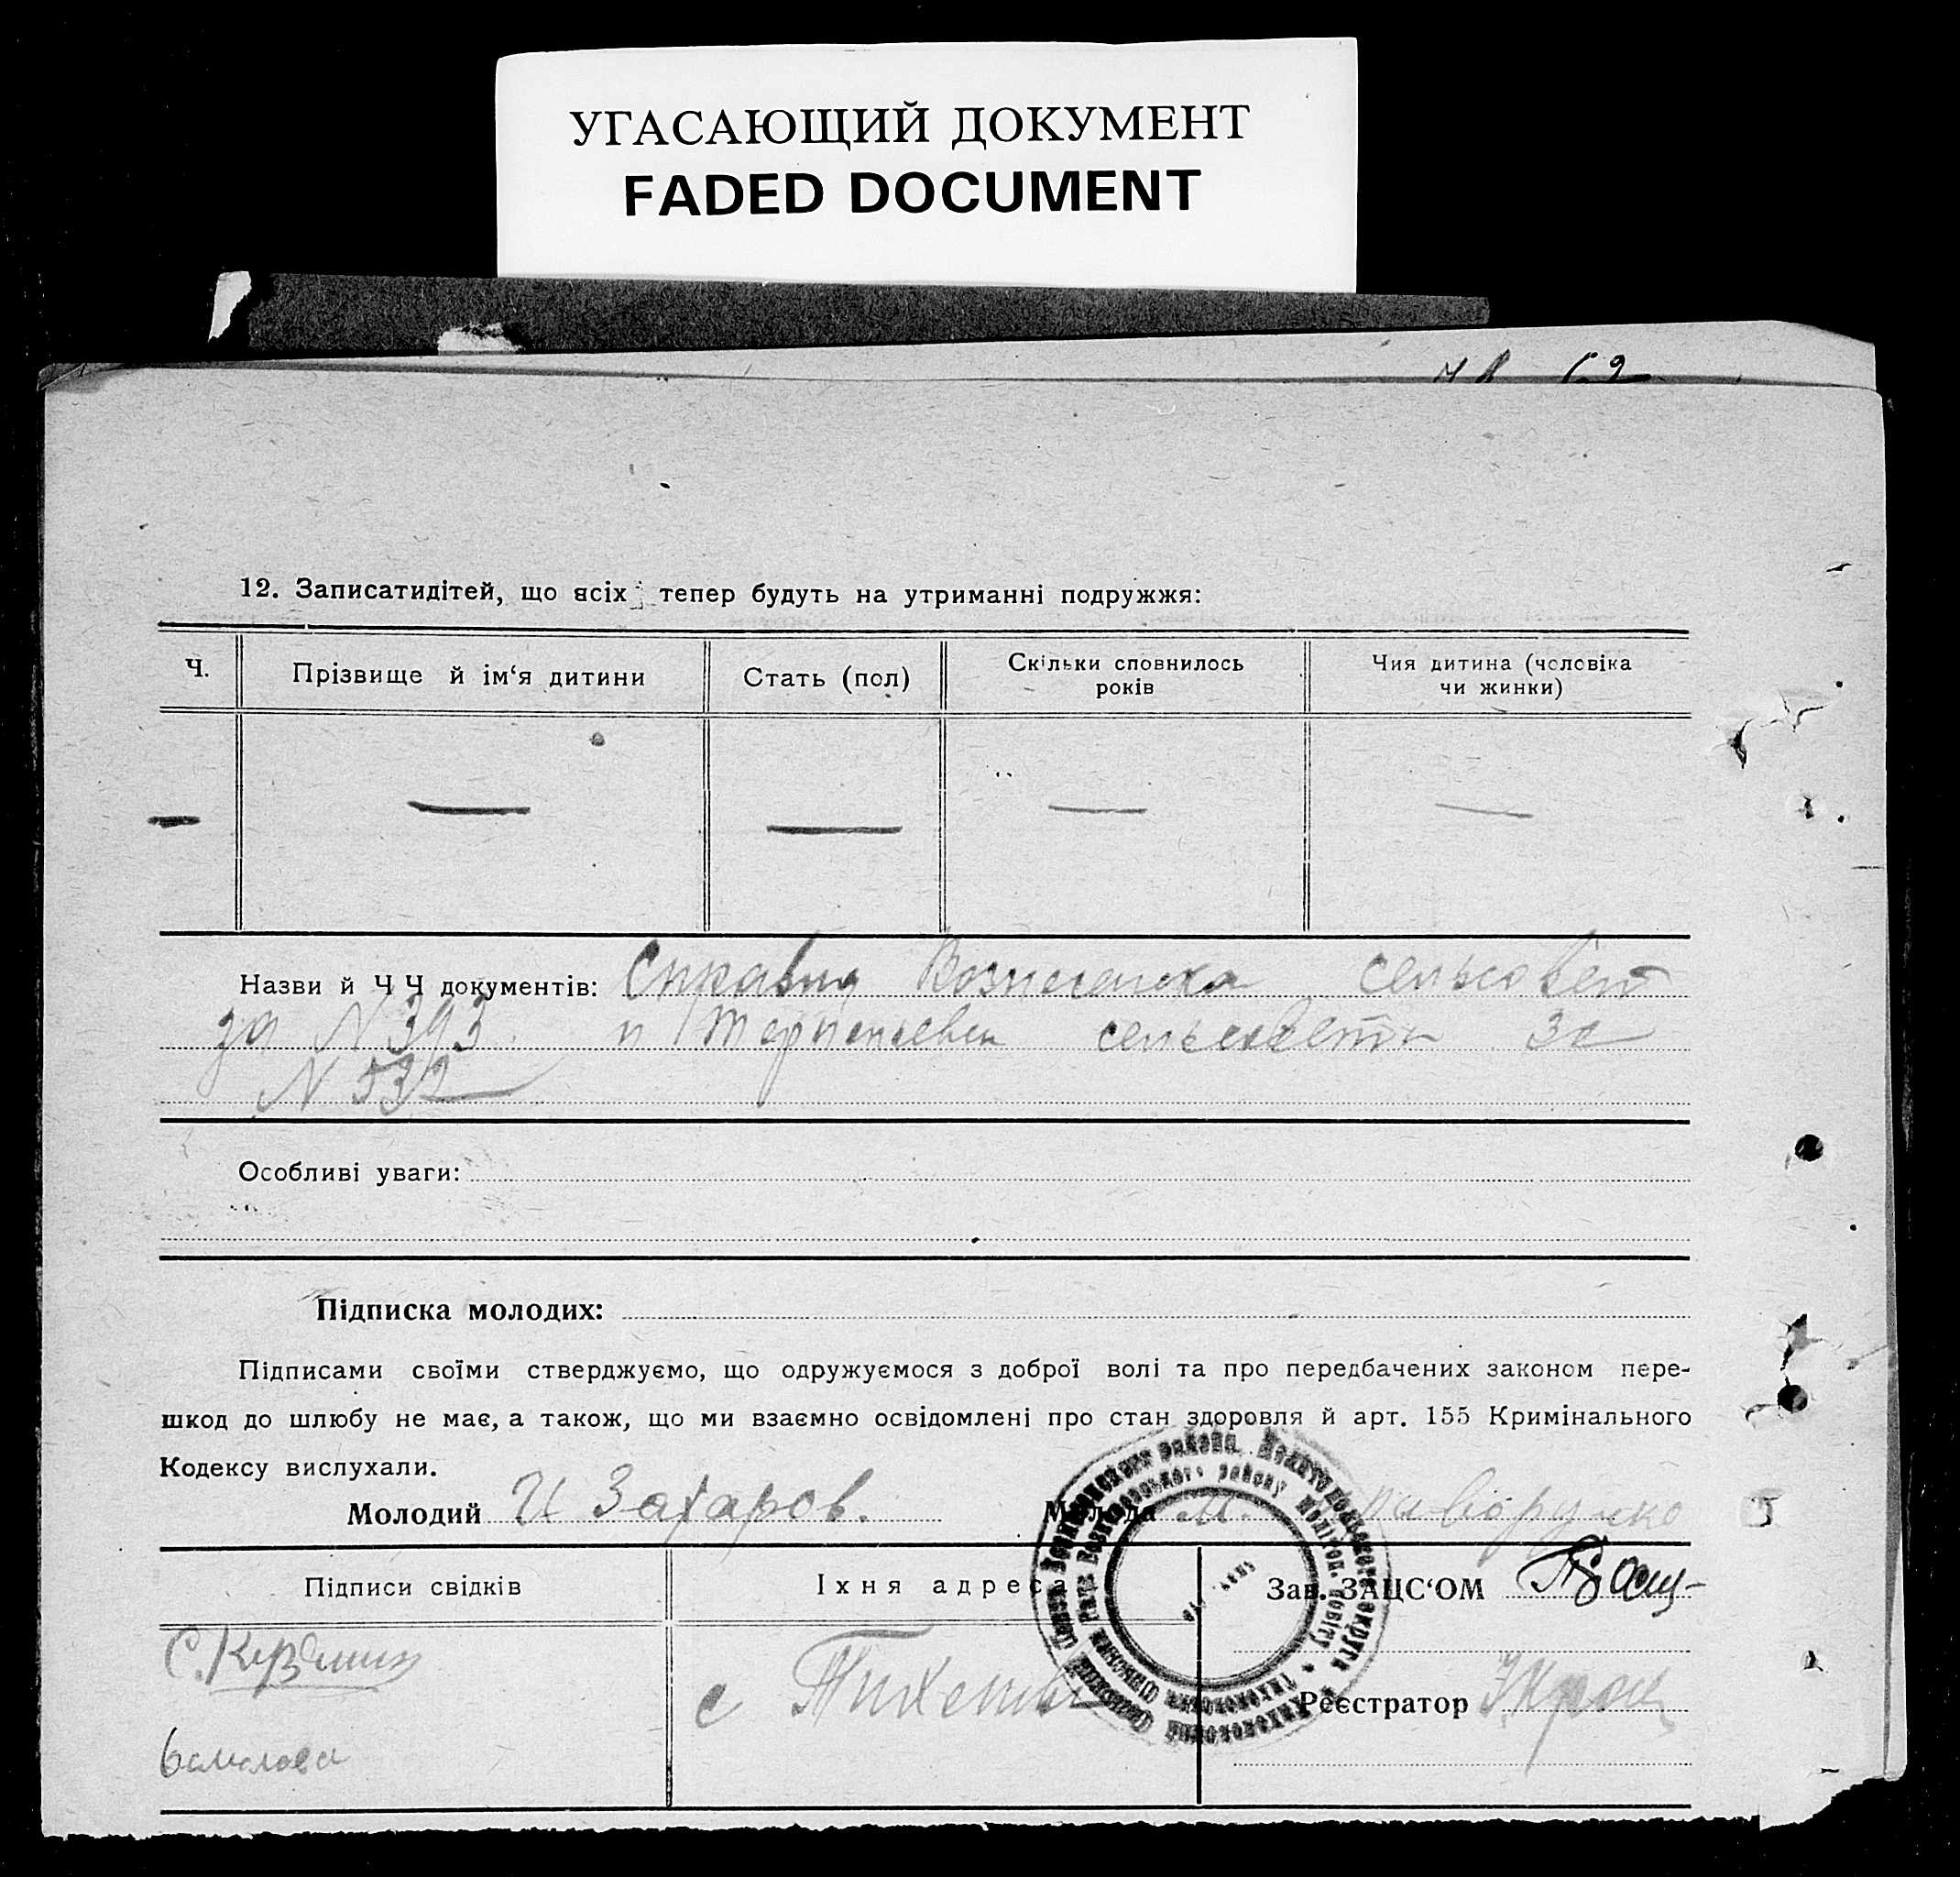 УГАСАЮЩИЙ ДОКУМЕНТ
FADED DOCUMENT
12. Записатидітей, що всіх тепер будуть на утриманні подружжя:
Ч.
Прізвище й ім‘я дитини
Стать (пол)
Скільки сповнилось
років
Чия дитина (чоловіка
чи жинки)
Назви й Ч Ч документів: сельсовет
за N 393 и сельсовета за
N 532
Особливі уваги:
Підписка молодих:
Підписами своїми стверджуємо, що одружуємося з доброї волі та про передбачених законом пере-
шкод до шлюбу не має, а також, що ми взаємно освідомлені про стан здоровля й арт. 155 Кримінального
Кодексу вислухали.
Молодий И Захаров.
Молода М.
Підписи свідків
Їхня адреса
Зав. ЗАЦС‘ОМ
с
Реєстратор